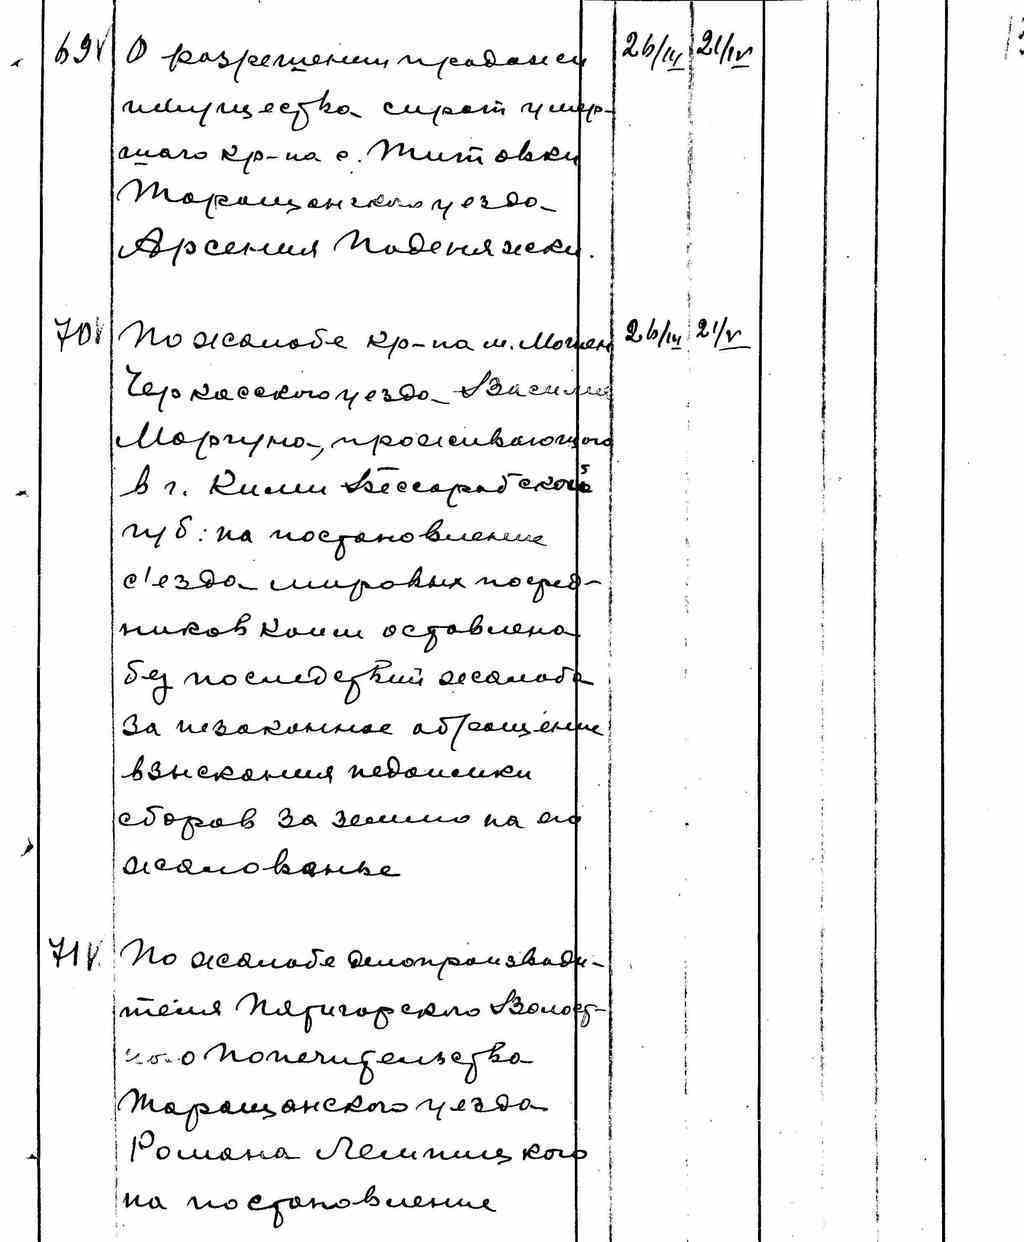 69 О разрешении продажи 26/III 21/IV
имущества сирот умер-
шаго кр-на с. Титовки
Таращанского уезда
Арсения Поденяжки.
70 По жалобе кр-на м. Мошен 26/III 21/V
Черкасского уезда Василия
Моргуна, проживающого
в г. Килии Бессарабской
губ: на постановление
с'езда мировых посред-
ников коим оставлена
без последствий жалоба
за незаконное обращение
взыскания недоимки
сборов за землю на его
жалованье
71 По жалобе делопроизводи-
теля Пятигорского Волост-
ного Попечительства
Таращанского уезда
Романа Лемпицкого
на постановление